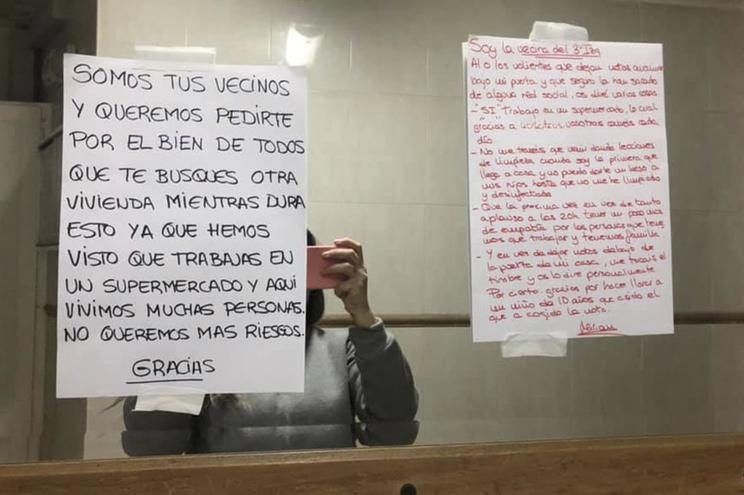 SOMOS TUS VECINOS
Y QUEREMOS PEDIRTE
POR EL BIEN DE TODOS
QUE TE BUSQUES OTRA
VIVIENDA MIENTRAS DURA
ESTO YA QUE HEMOS
VISTO QUE TRABAJAS EN
UN SUPERMERCADO Y AQUI
VIVIMOS MUCHAS PERSONAS.
NO QUEREMOS MAS RIESGOS.
GRACIAS
Soy la vecina del 3º Izq
Al o los valientes que dejan notas
bajo mi puerta y que seguro la han sacado
de alguna red social, os diré varias cosas
- "SI" Trabajo en un supermercado, lo cual
gracias a nosotros vosotros coméis cada
día.
- No me tenéis que venir dando lecciones
de limpieza cuando soy la primera que
llega a casa y no puedo darle un beso a
mis hijos hasta que no me he limpiado
y desinfectado
- Que la próxima vez en vez de tanto
aplauso a las 20h tener un poco mas
de empatía por las personas que tene
mos que trabajar y tenemos familia.
- Y en vez de dejar notas debajo de
la puerta de mi casa, me tocais el
timbre y os lo diré personalmente
Por cierto gracias por hacer llorar a
un niño de 10 años que ha sido el
que a cogido la nota.